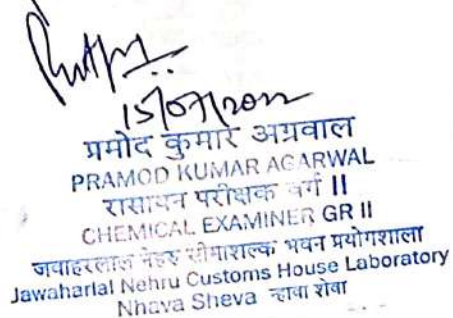 15/07/2022
प्रमोद कुमार अग्रवाल
PRAMOD KUMAR AGARWAL
रासायन परीक्षक वर्ग II
CHEMICAL EXAMINER GR II
जवाहरलाल नेहरु सीमाशुल्क भवन प्रयोगशाला
Jawaharlal Nehru Customs House Laboratory
Nhava Sheva न्हावा शेवा